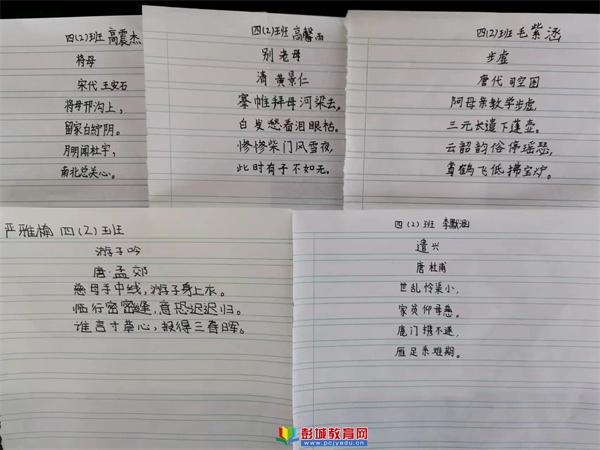 四(2)班 高震杰
将母
宋代 王安石
将母邗沟上,
留家白纻阴。
月明闻杜宇,
南北总关心。
四(2)班 高馨雨
别老母
清 黄景仁
搴帷拜母河梁去,
白发愁看泪眼枯。
惨惨柴门风雪夜,
此时有子不如无。
四(2)班 毛紫涵
步虚
唐代 司空图
阿母亲教学步虚,
三元长遣下蓬壶。
云韶韵俗停瑶瑟,
鸾鹤飞低拂宝炉。
严雅榆 四(2)班
游子吟
唐·孟郊
慈母手中线,游子身上衣。
临行密密缝,意恐迟迟归。
谁言寸草心,报得三春晖。
四(2)班 李默涵
遣兴
唐 杜甫
世乱怜渠小,
家贫仰母慈。
鹿门携不遂,
雁足系难期。
彭城教育网
www.pcjyedu.cn